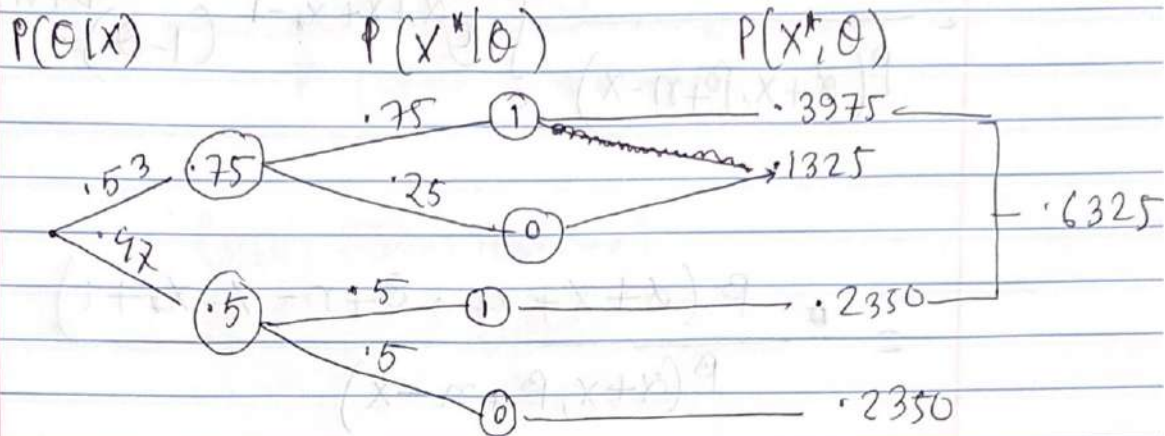 P(θ|X) P(X*|θ) P(X*, θ)
.75 1 .3975
.53 .75 .25 .1325
0 .6325
.47 .5 .5 1 .2350
.5
0 .2350